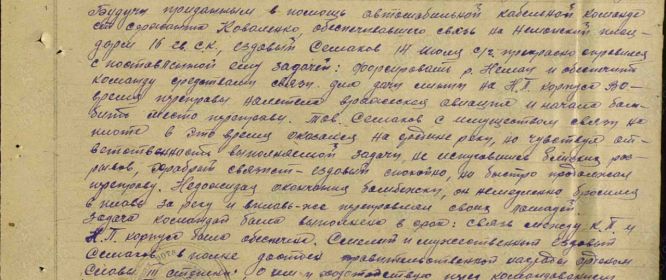 Будучи приданным в помощь автомобильной кабельной команде
ст. сержанта Коваленко, обеспечивавшего связь на Неманский плац-
дарм 16 гв. СК, ездовый Семаков 14 июля с/г. прекрасно справился
с поставленной ему задачей: форсировать р. Неман и обеспечить
команду средствами связи для дачи линии на Н.П. корпуса. Во-
время переправы налетела вражеская авиация и начала бом-
бить место переправы. Тов. Семаков с имуществом связи на
плоту в это время оказался на средине реки, но чувствуя от-
ветственность выполняемой задачи, не испугавшись близких раз-
рывов, храбрый связист-ездовый спокойно, но быстро продолжал
переправу. Недожидая окончания бомбежки, он немедленно бросился
вплавь за реку и вплавь-же переправил своих лошадей.
Задача командой была выполнена в срок: связь между К.П. и
Н.П. корпуса была обеспечена. Смелый и мужественный ездовый
Семаков вполне достоин правительственной награды орденом
Славы III степени.